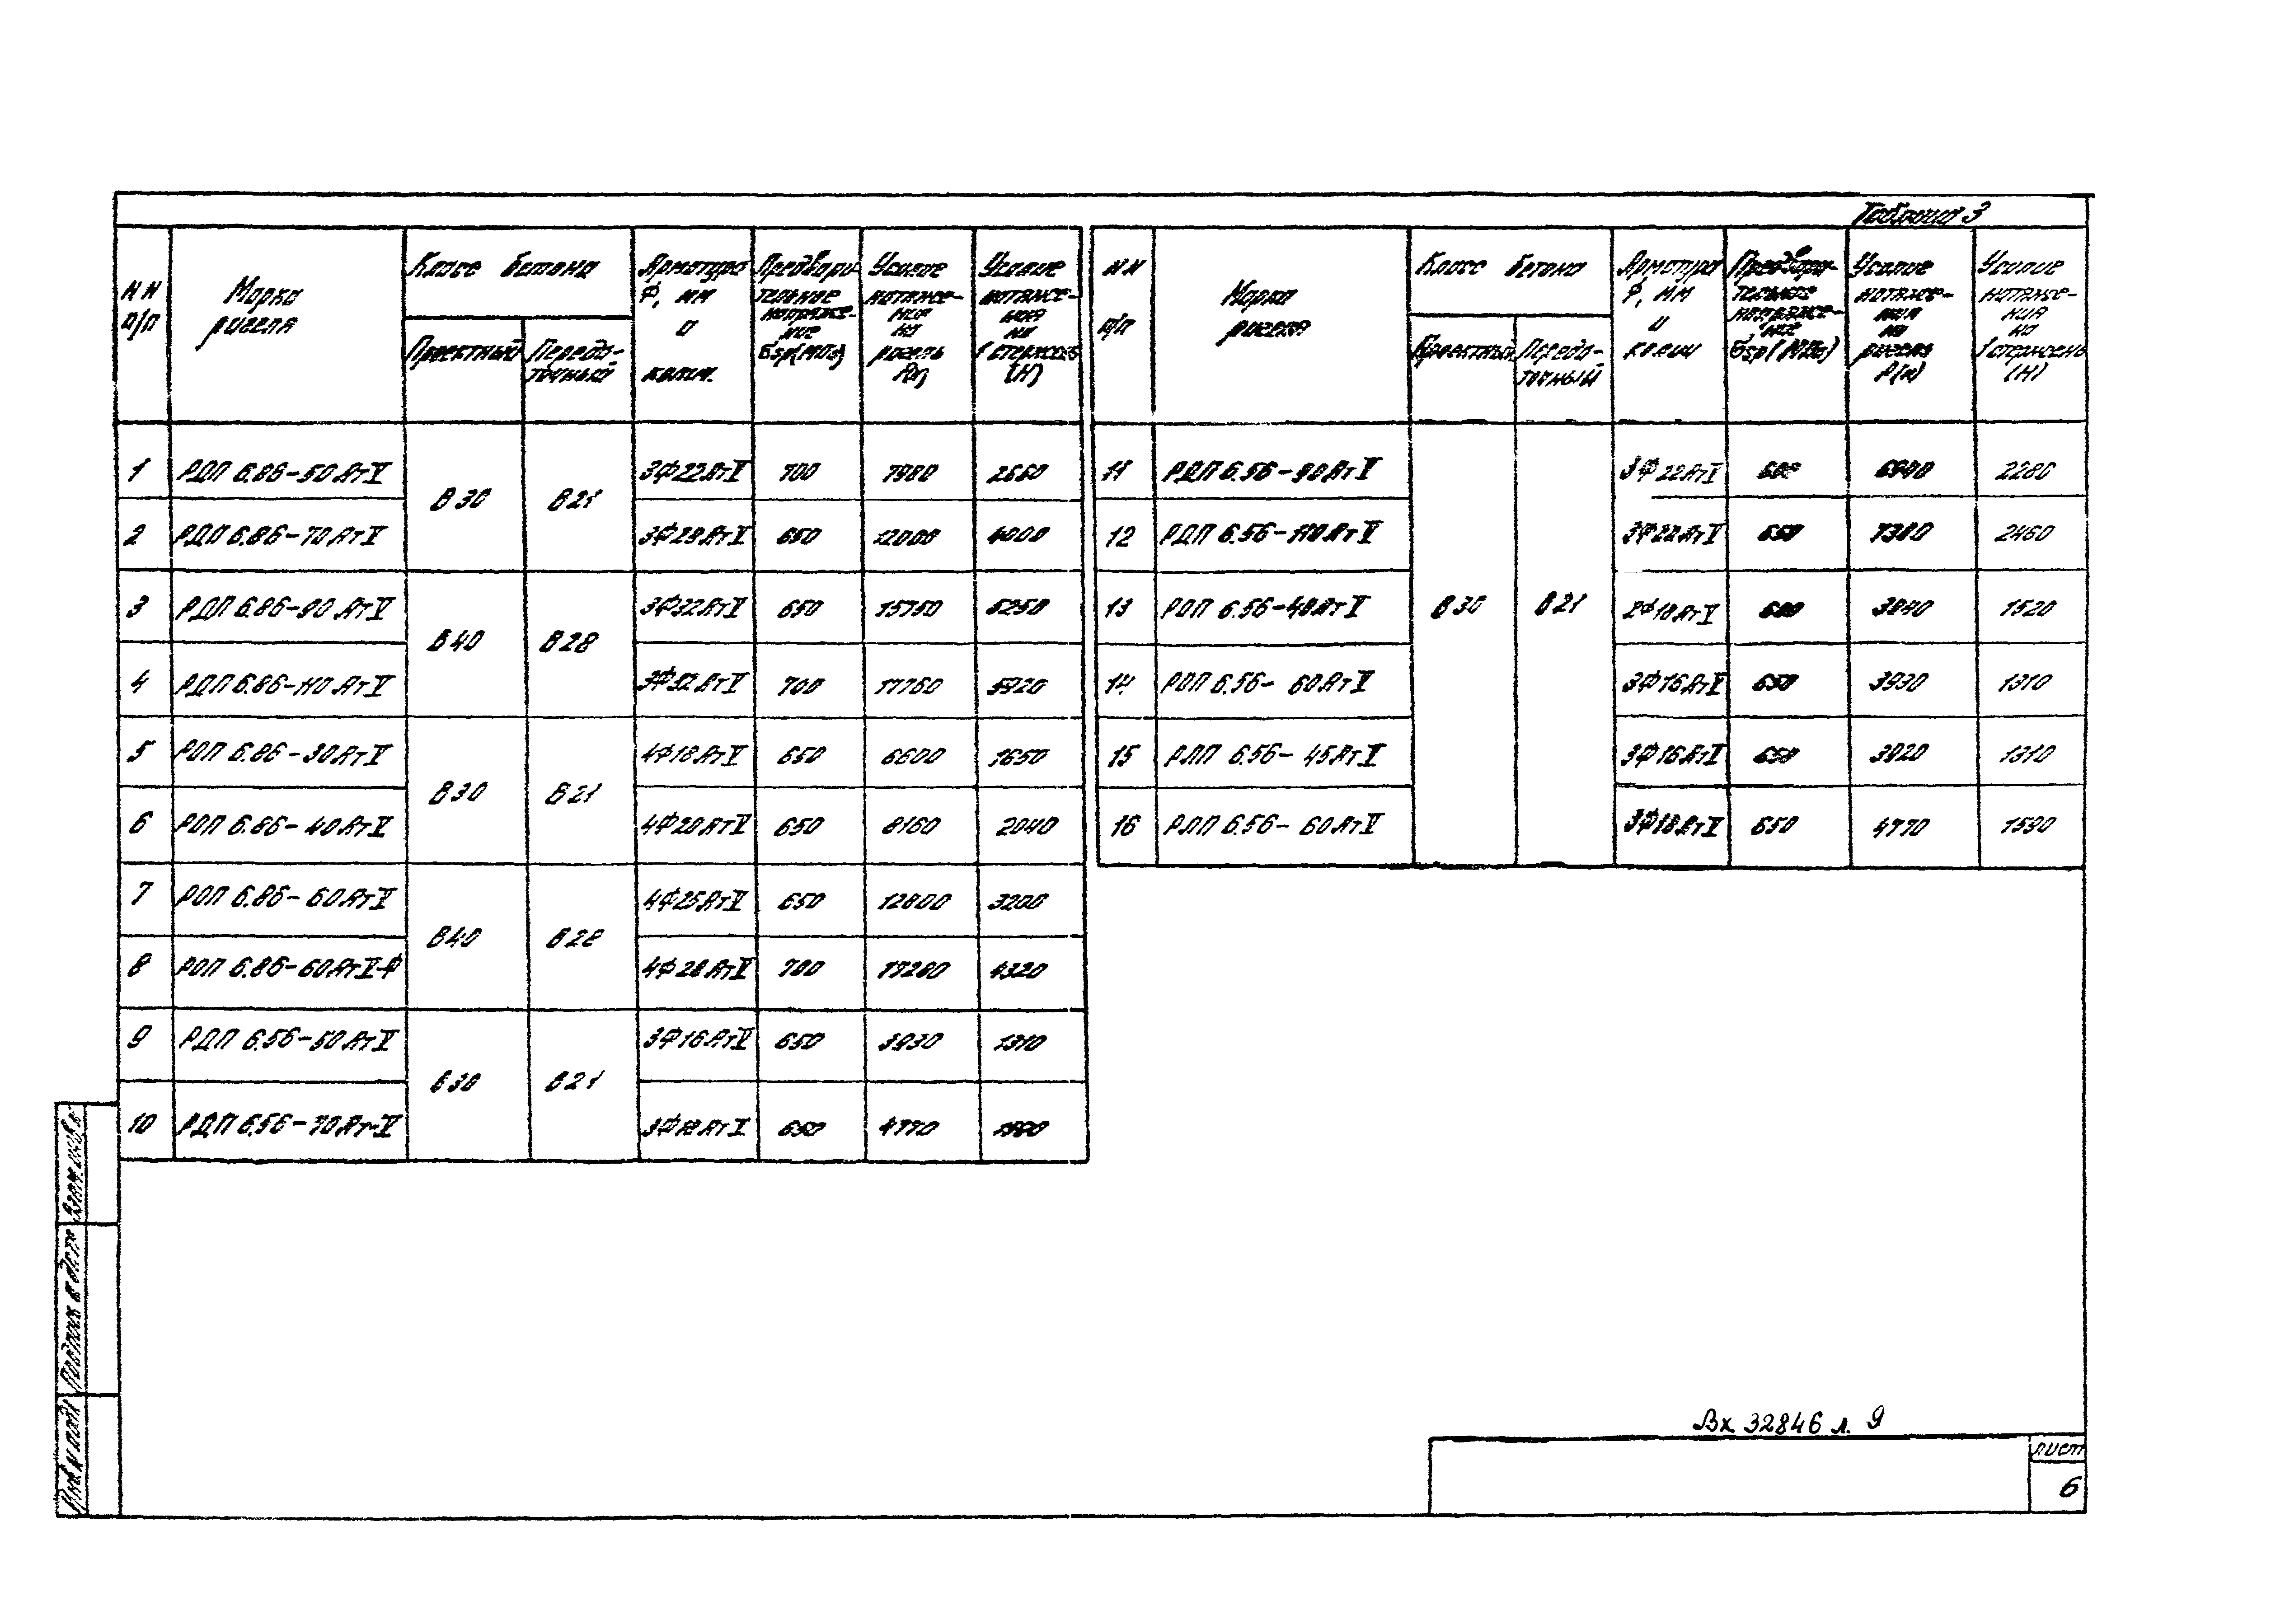 Таблица 3
NN п/п | Марка ригеля | Класс бетона | Арматура Ф, мм и колич. | Предвари-тельное напряже-ние бsp(МПа) | Усилие натяже-ния на ригель P(н) | Усилие натяже-ния на 1 стержень (Н)
Проектный | Передо-точный
1 РДП 6.86-50АтV В30 В21 3Ф22АтV 700 7980 2660
2 РДП 6.86-70АтV 3Ф28АтV 650 12000 4000
3 РДП 6.86-90 АтV В40 В28 3Ф32АтV 650 15750 5250
4 РДП 6.86-110 АтV 3Ф32АтV 700 17760 5920
5 РОП 6.86-30АтV В30 В21 4Ф18АтV 650 6600 1650
6 РОП 6.86-40АтV 4Ф20АтV 650 8160 2040
7 РОП 6.86-60АтV В40 В28 4Ф25АтV 650 12800 3200
8 РОП 6.86-60АтV-Ф 4Ф28АтV 700 17280 4320
9 РДП 6.56-50АтV В30 В21 3Ф16АтV 650 3930 1310
10 РДП 6.56-70Ат-V 3Ф18АтV 650 4770
NN п/п | Марка ригеля | Класс бетона | Арматура Ф, мм и колич | Предвари-тельное напряже-ние бsp(МПа) | Усилие натяже-ния на ригель P(н) | Усилие натяже-ния на 1 стержень (Н)
Проектный | Передо-точный
11 РДП 6.56-90АтV В30 В21 3Ф22АтV 2280
12 РДП 6.56-110АтV 3Ф22АтV 650 7380 2460
13 РОП 6.56-40АтV 2Ф18АтV 3040 1520
14 РОП 6.56- 60АтV 3Ф16АтV 650 3930 1310
15 РЛП 6.56- 45АтV 3Ф16АтV 650 3920 1310
16 РЛП 6.56- 60АтV 3Ф18АтV 650 4770 1590
Взам.инв.№
Подпись и дата
Инв N подл
Вх 32846 л. 9
лист
6